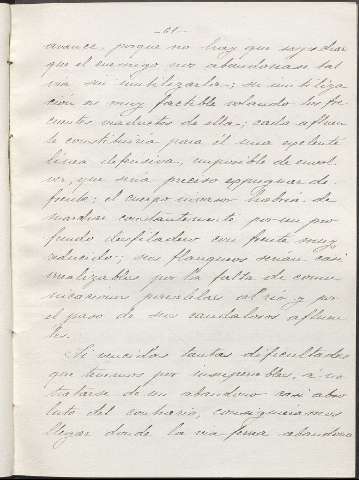 -61-
avance, porque no hay que sospechar
que el enemigo nos abandonase tal
via sin inutilizarla; su inutiliza
cion es muy factible volando los fre
cuentes viaductos de ella; cada afluen
te constituiria para él una excelente
linea defensiva, imposible de envol
ver, que seria preciso expugnar de
frente; el cuerpo invasor habria de
marchar constantemente por un pro
fundo desfiladero con frente muy
reducido; sus flanqueos serian casi
irrealizables por la falta de comu
nicaciones paralelas al rio y por
el paso de sus caudalosos afluen
tes.
Si vencidas tantas dificultades
que tenemos por insuperables, á no
tratarse de un abandono casi abso
luto del contrario, consiguieramos
llegar donde la via ferrea abandona